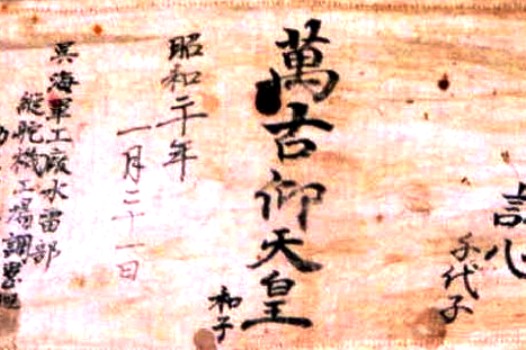 心
千代子
萬古仰天皇
和子
昭和二十年
一月二十一日
呉海軍工廠水雷部
縦舵機工場調整